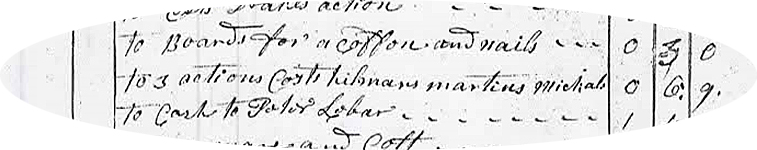 action
to Boards for a coffon and nails - - - 0 3 0
to 3 actions Costs kilmans martins Michals 0 6. 9.
to Cash to Peter Lobar - - - - - - - -
and Coff